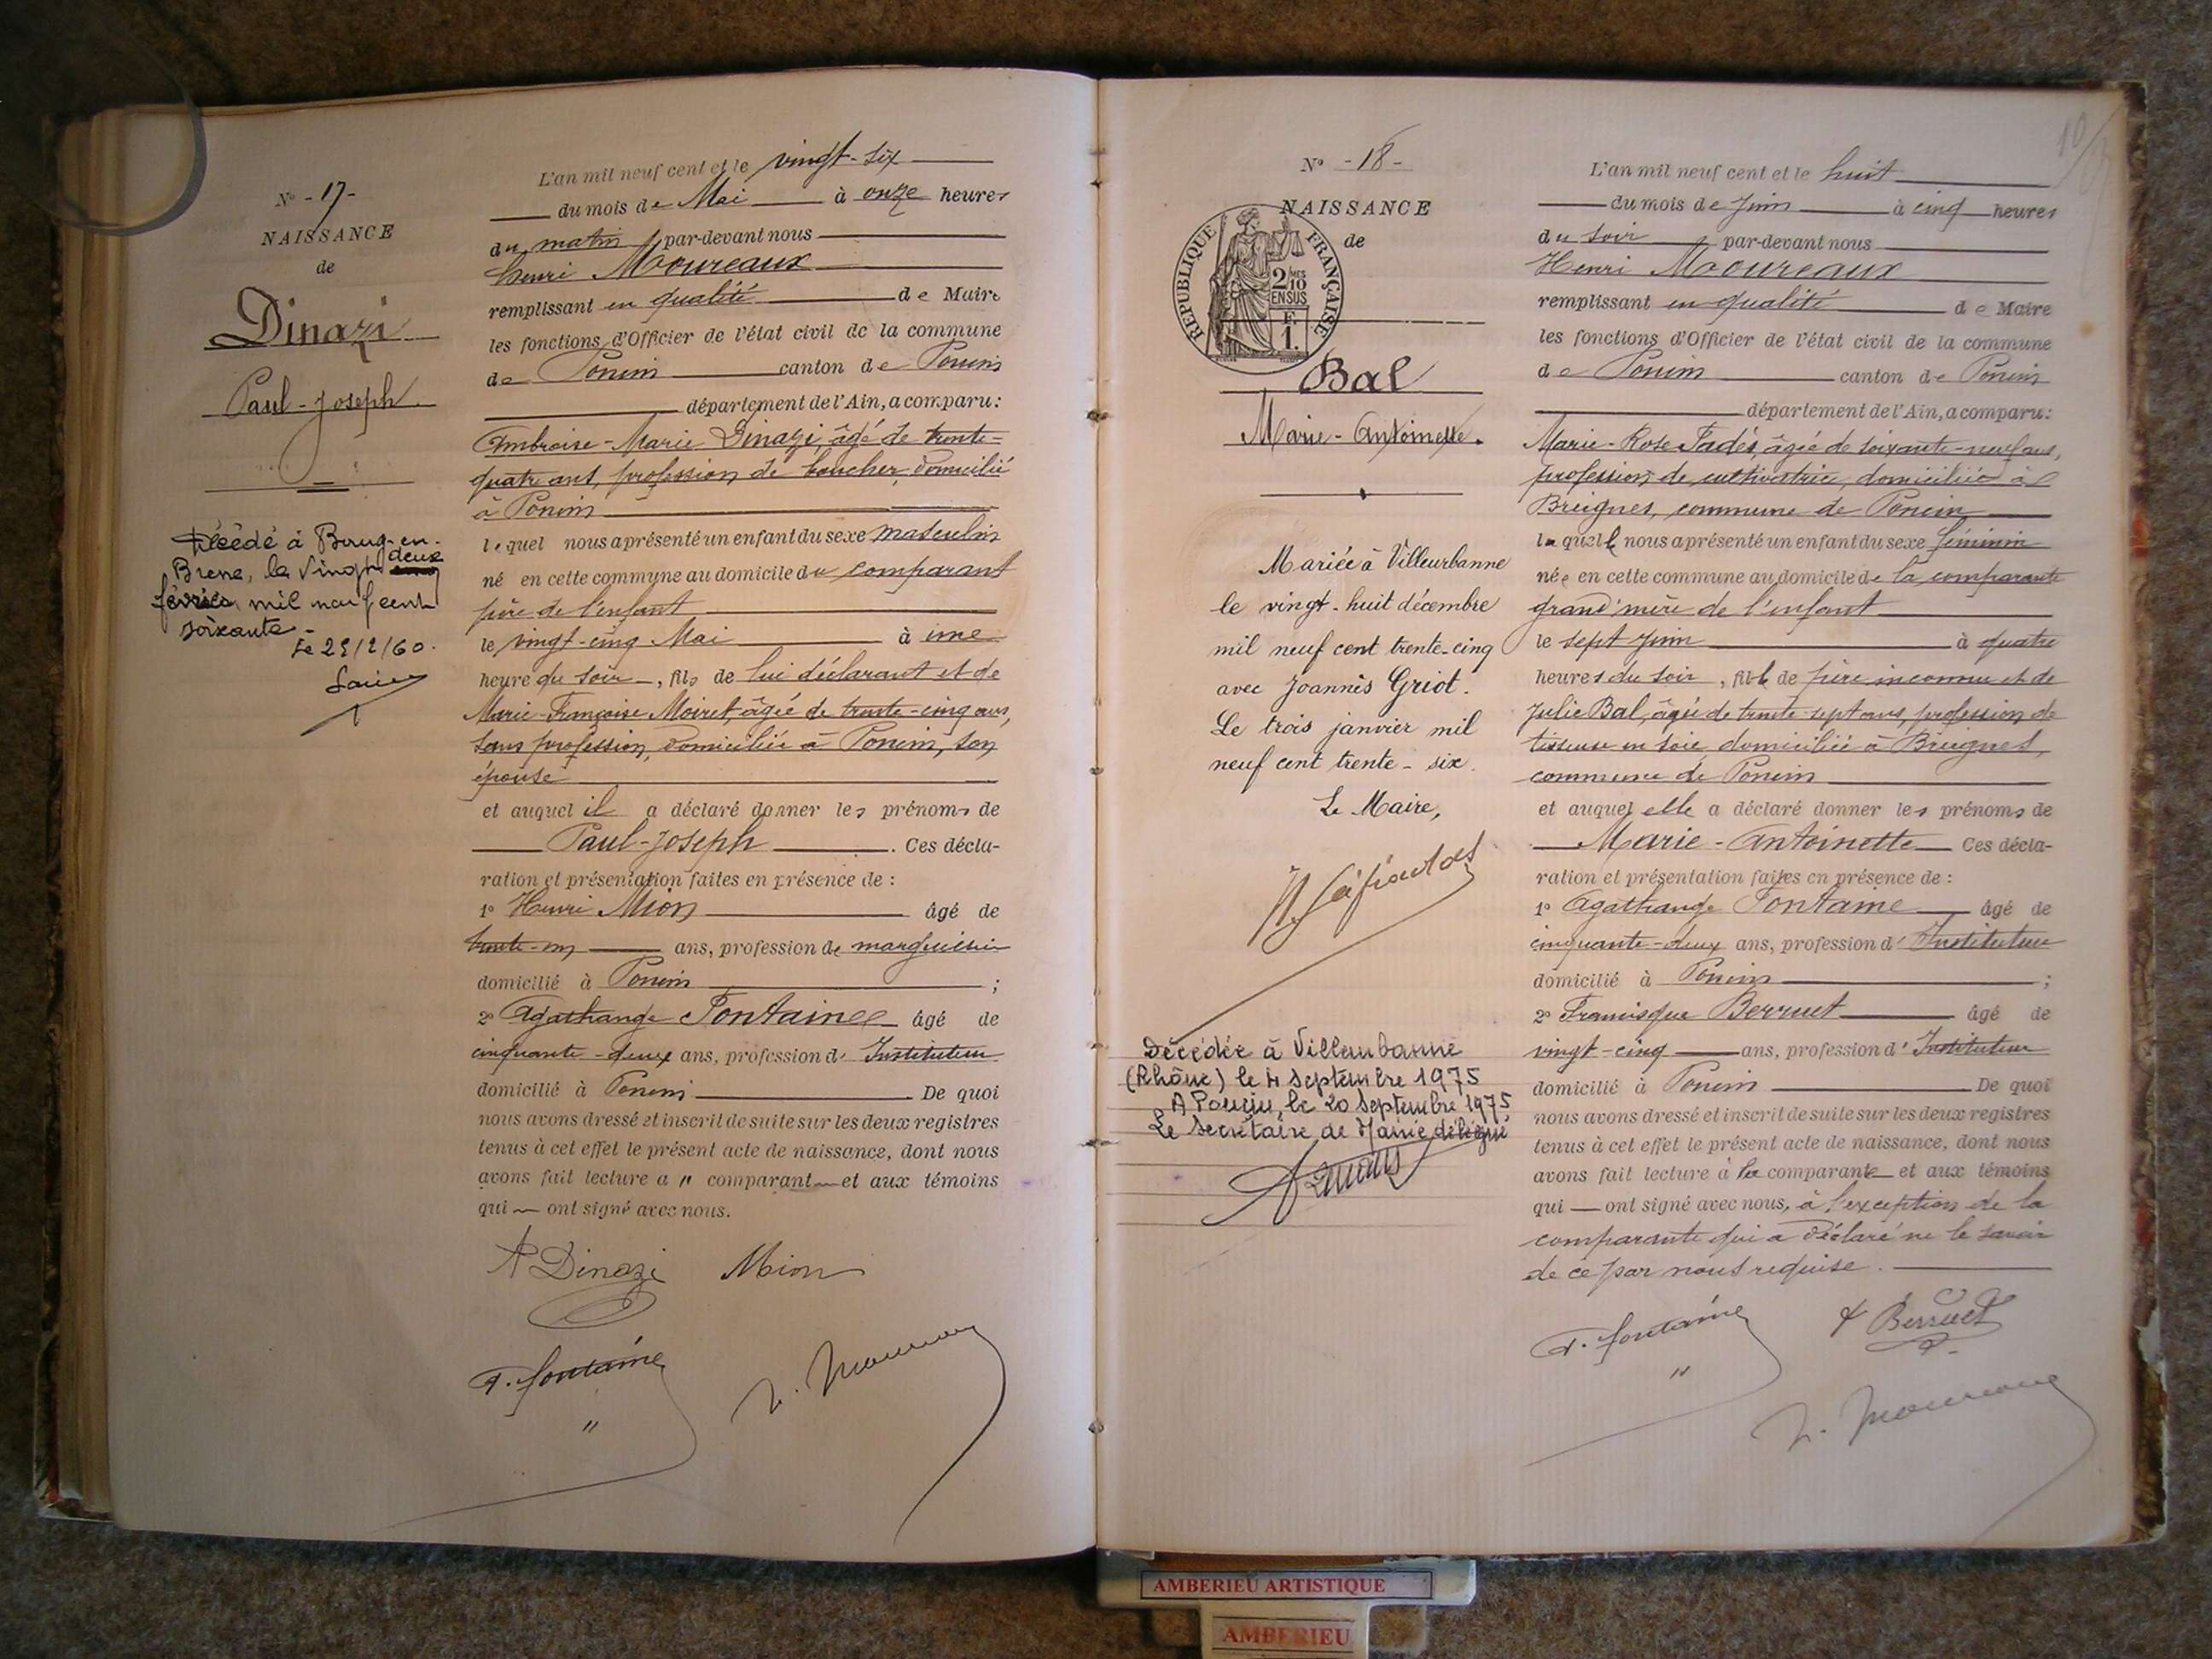 N° - 17 -
NAISSANCE
de
Dinazi
Paul-Joseph.
Décédé à Bourg-en-
Bresse, le vingt deux
février mil neuf cent
soixante -
Le 25/2/60.
L'an mil neuf cent et le vingt-six
du mois de Mai à onze heures
du matin par-devant nous
Henri Moureaux
remplissant en qualité de Maire
les fonctions d'Officier de l'état civil de la commune
de Poncin canton de Poncin
département de l'Ain, a comparu :
Ambroise-Marie Dinazi, âgé de trente-
quatre ans, profession de boucher, domicilié
à Poncin
lequel nous a présenté un enfant du sexe masculin
né en cette commune au domicile du comparant
père de l'enfant
le vingt-cinq Mai à une
heure du soir, fils de lui déclarant et de
Marie-Françoise Moiret, âgée de trente-cinq ans,
sans profession, domiciliée à Poncin, son
épouse
et auquel il a déclaré donner les prénoms de
Paul-Joseph. Ces décla-
ration et présentation faites en présence de :
1° Henri Mion âgé de
trente-un ans, profession de
domicilié à Poncin ;
2° Agathange Fontaine âgé de
cinquante-deux ans, profession d' Instituteur
domicilié à Poncin De quoi
nous avons dressé et inscrit de suite sur les deux registres
tenus à cet effet le présent acte de naissance, dont nous
avons fait lecture a " comparant et aux témoins
qui ont signé avec nous.
A Dinazi Mion
A. fontaine
"
N° - 18 -
NAISSANCE
de
REPUBLIQUE FRANÇAISE
2/10 MES
EN SUS
F.
1.
Bal
Marie-Antoinette.
Mariée à Villeurbanne
le vingt-huit décembre
mil neuf cent trente-cinq
avec Joannès Griot.
Le trois janvier mil
neuf cent trente-six.
Le Maire,
Décédée à Villeurbanne
(Rhône) le 4 septembre 1975
A Poncin, le 20 septembre 1975
Le Secrétaire de Mairie délégué
10
L'an mil neuf cent et le huit
du mois de Juin à cinq heures
du soir par-devant nous
Henri Moureaux
remplissant en qualité de Maire
les fonctions d'Officier de l'état civil de la commune
de Poncin canton de Poncin
département de l'Ain, a comparu :
Marie-Rose âgée de soixante-neuf ans,
profession de cultivatrice, domiciliée à
Breignes, commune de Poncin
laquelle nous a présenté un enfant du sexe féminin
née en cette commune au domicile de la comparante
grand'mère de l'enfant
le sept Juin à quatre
heures du soir, fille de père inconnu et de
Julie Bal, âgée de trente-sept ans, profession de
tisseuse en soie domiciliée à Breignes,
commune de Poncin
et auquel elle a déclaré donner les prénoms de
Marie-Antoinette Ces décla-
ration et présentation faites en présence de :
1° Agathange Fontaine âgé de
cinquante-deux ans, profession d' Instituteur
domicilié à Poncin ;
2° Francisque Berruet âgé de
vingt-cinq ans, profession d' Instituteur
domicilié à Poncin De quoi
nous avons dressé et inscrit de suite sur les deux registres
tenus à cet effet le présent acte de naissance, dont nous
avons fait lecture à la comparante et aux témoins
qui ont signé avec nous, à l'exception de la
comparante qui a déclaré ne le savoir
de ce par nous requise.
A. fontaine F Berruet
"
AMBERIEU ARTISTIQUE
AMBERIEU